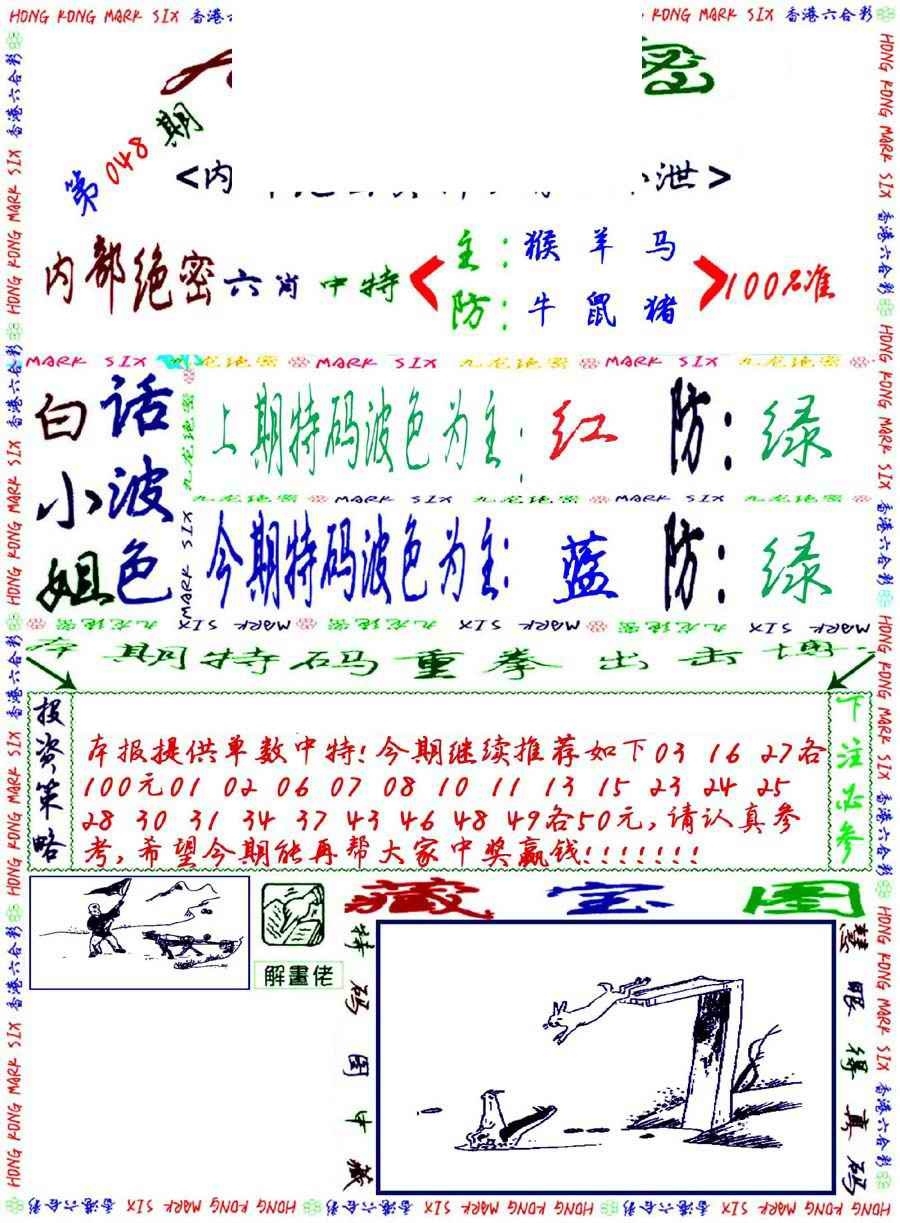 HONG KONG MARK SIX 香港六合彩
KONG MARK SIX 香港六合彩
密
第048期
<内
泄>
内部绝密六肖中特
主:猴羊马
防:牛鼠猪
100%准
MARK SIX 九龙绝密 MARK SIX 九龙绝密 MARK SIX 九龙绝密
白小姐
话波色
上期特码波色为主:红 防:绿
九龙绝密 MARK SIX 九龙绝密 MARK SIX 九龙绝密
今期特码波色为主:蓝 防:绿
MARK SIX 九龙绝密 MARK SIX 九龙绝密 MARK SIX 九龙绝密
本期特码重拳出击博
投资策略
本报提供单数中特!今期继续推荐如下03 16 27各
100元01 02 06 07 08 10 11 13 15 23 24 25
28 30 31 34 37 43 46 48 49各50元,请认真参
考,希望今期能再帮大家中奖赢钱!!!!!!!
下注必参
解畫佬
藏宝图
特码图中藏
慧眼得真码
HONG KONG MARK SIX 香港六合彩 HONG KONG MARK SIX 香港六合彩 HONG KONG MARK SIX 香港六合彩